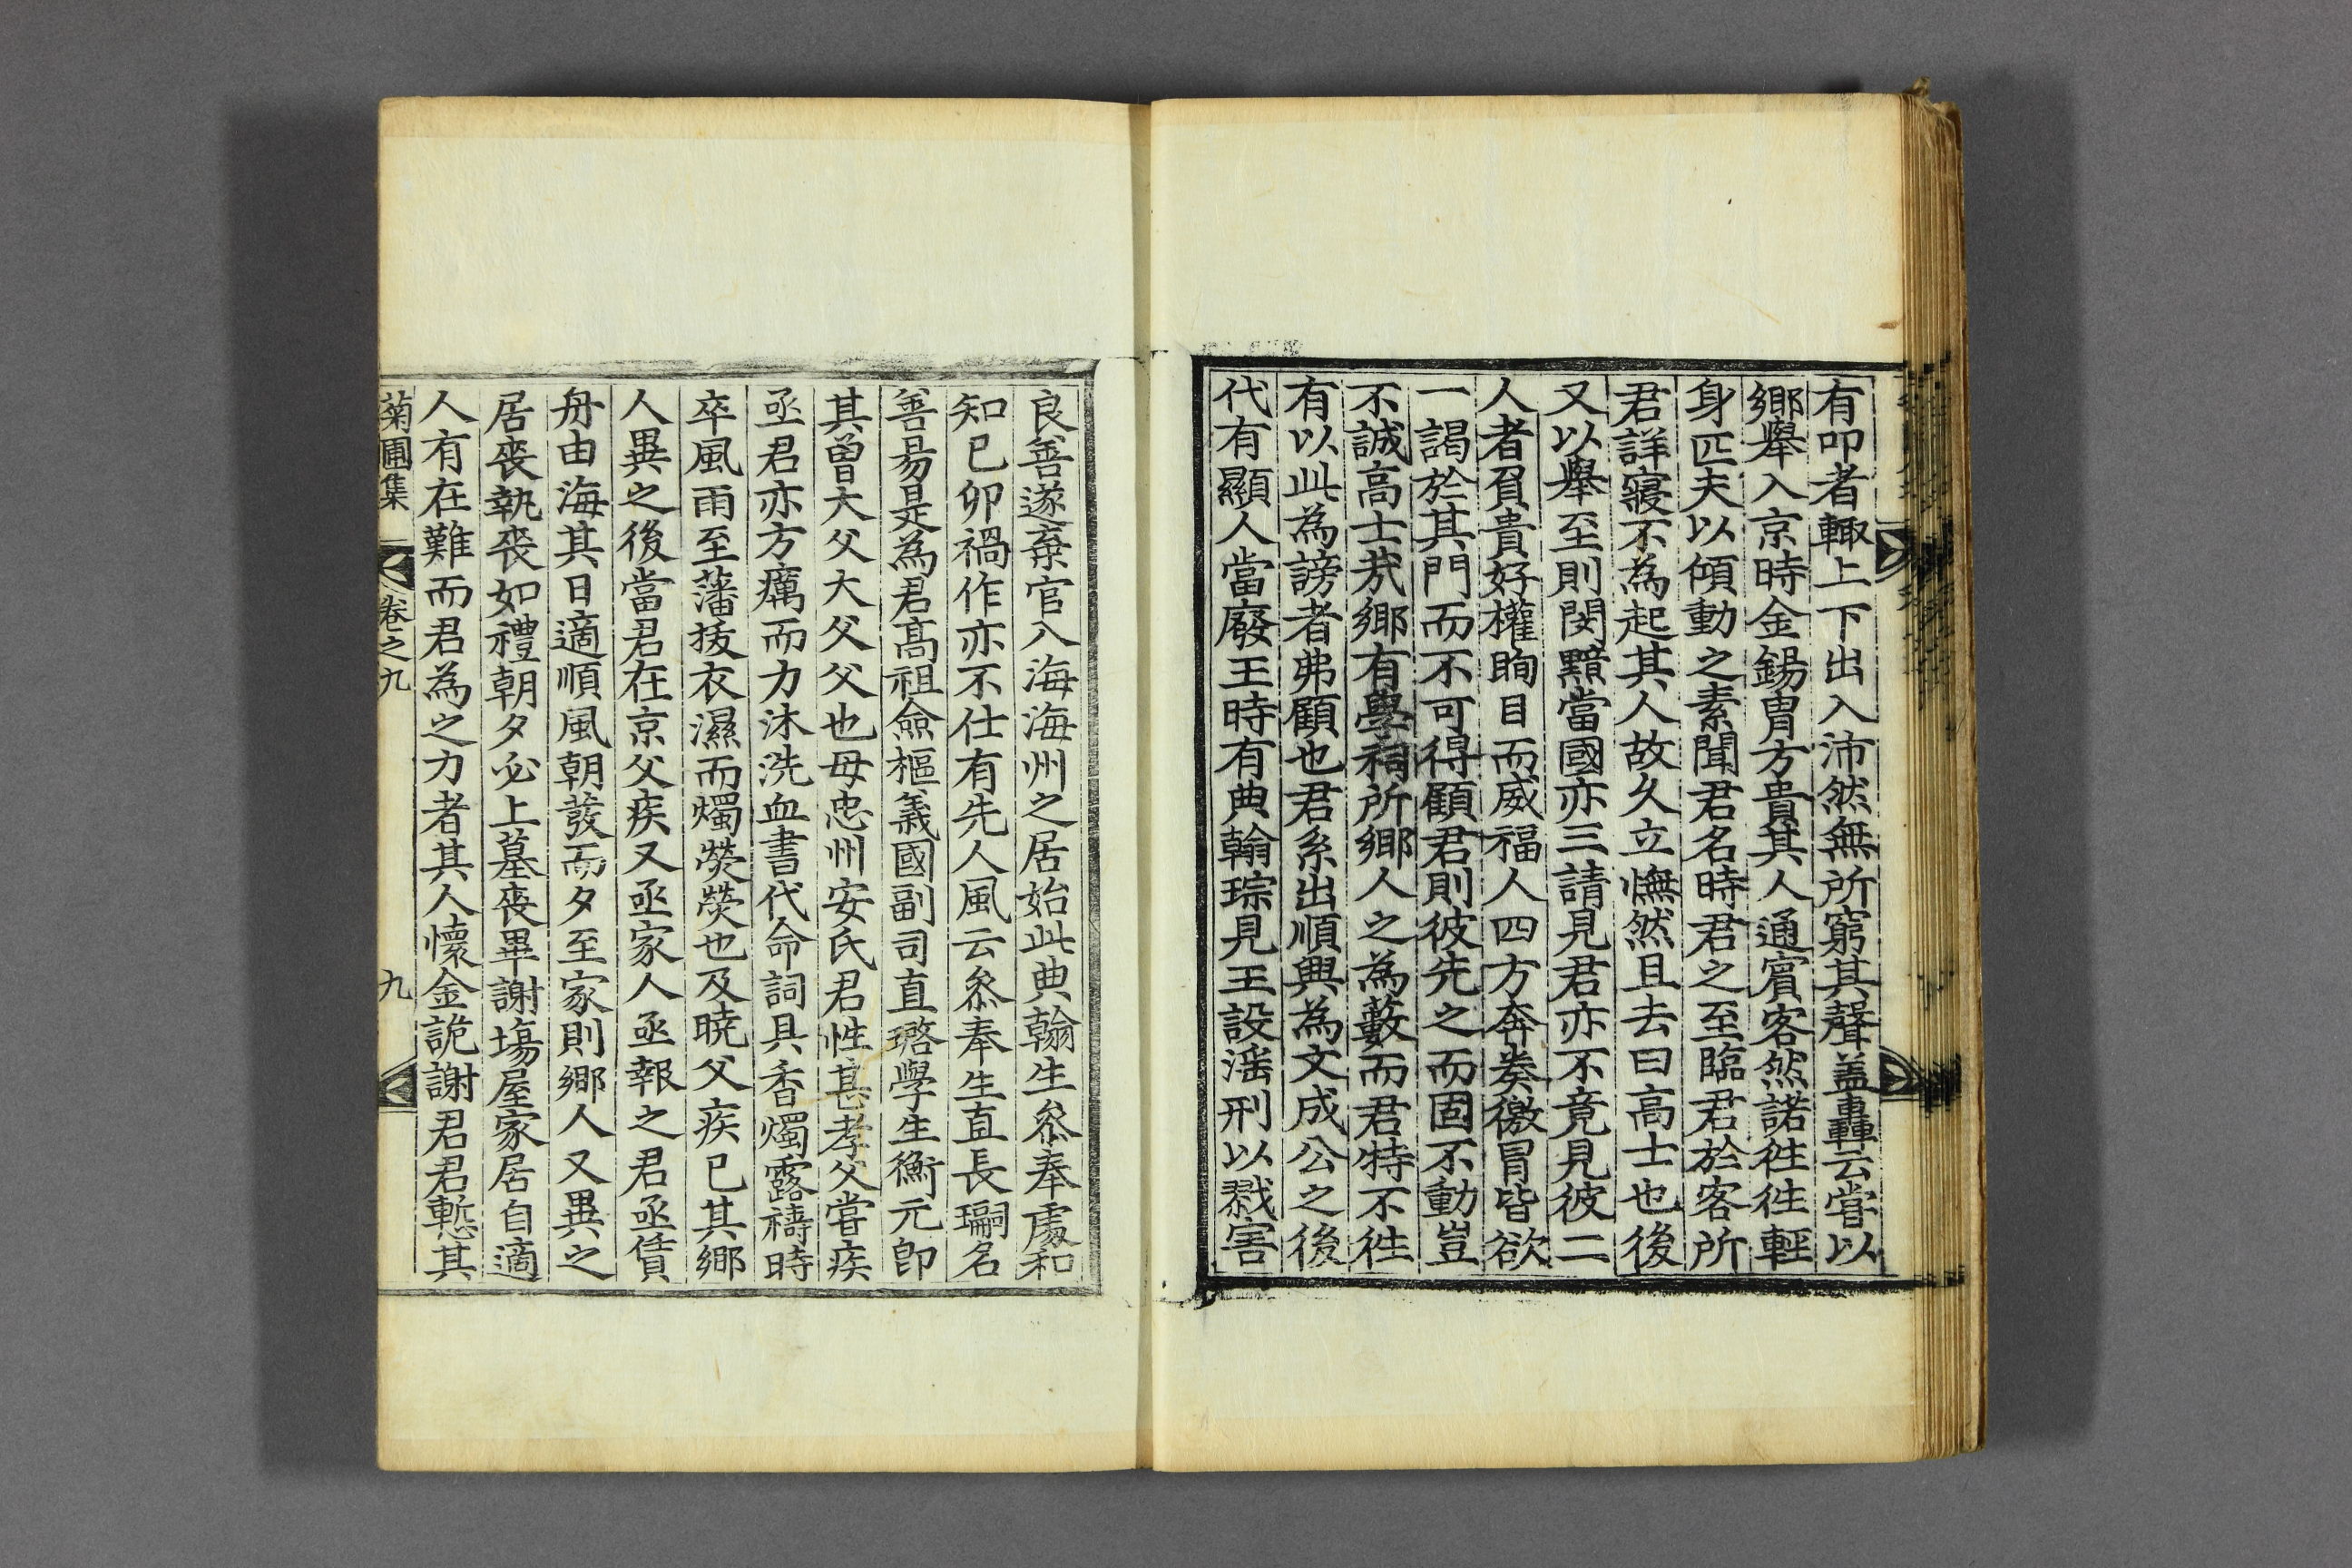 有叩者輙上下出入沛然無所窮其聲盖轟云嘗以
鄉舉入京時金錫胄方貴其人通賓客然諾徃徃輕
身匹夫以傾動之素聞君名時君之至臨君於客所
君詳寢不為起其人故久立憮然且去曰高士也後
又以舉至則閔黯當國亦三請見君亦不竟見彼二
人者負貴好權眴目而威福人四方奔奏徼冒皆欲
一謁於其門而不可得顧君則彼先之而固不動豈
不誠高士㢤鄉有學祠所鄉人之為藪而君特不徃
有以此為謗者弗顧也君系出順興為文成公之後
代有顯人當廢王時有典翰琮見王設滛刑以戮害
良善遂棄官入海海州之居始此典翰生叅奉處和
知己卯禍作亦不仕有先人風云叅奉生直長璛名
善昜是為君高祖僉樞義國副司直璐學生衡元卽
其曾大父大父父也母忠州安氏君性甚孝父嘗疾
亟君亦方癘而力沐洗血書代命詞具香燭露禱時
卒風雨至藩拔衣濕而燭熒熒也及曉父疾已其鄉
人異之後當君在京父疾又亟家人亟報之君亟賃
舟由海其日適順風朝發而夕至家則鄉人又異之
居丧執丧如禮朝夕必上墓丧畢謝塲屋家居自適
人有在難而君為之力者其人懷金詭謝君君慙其
菊圃集 卷之九 九